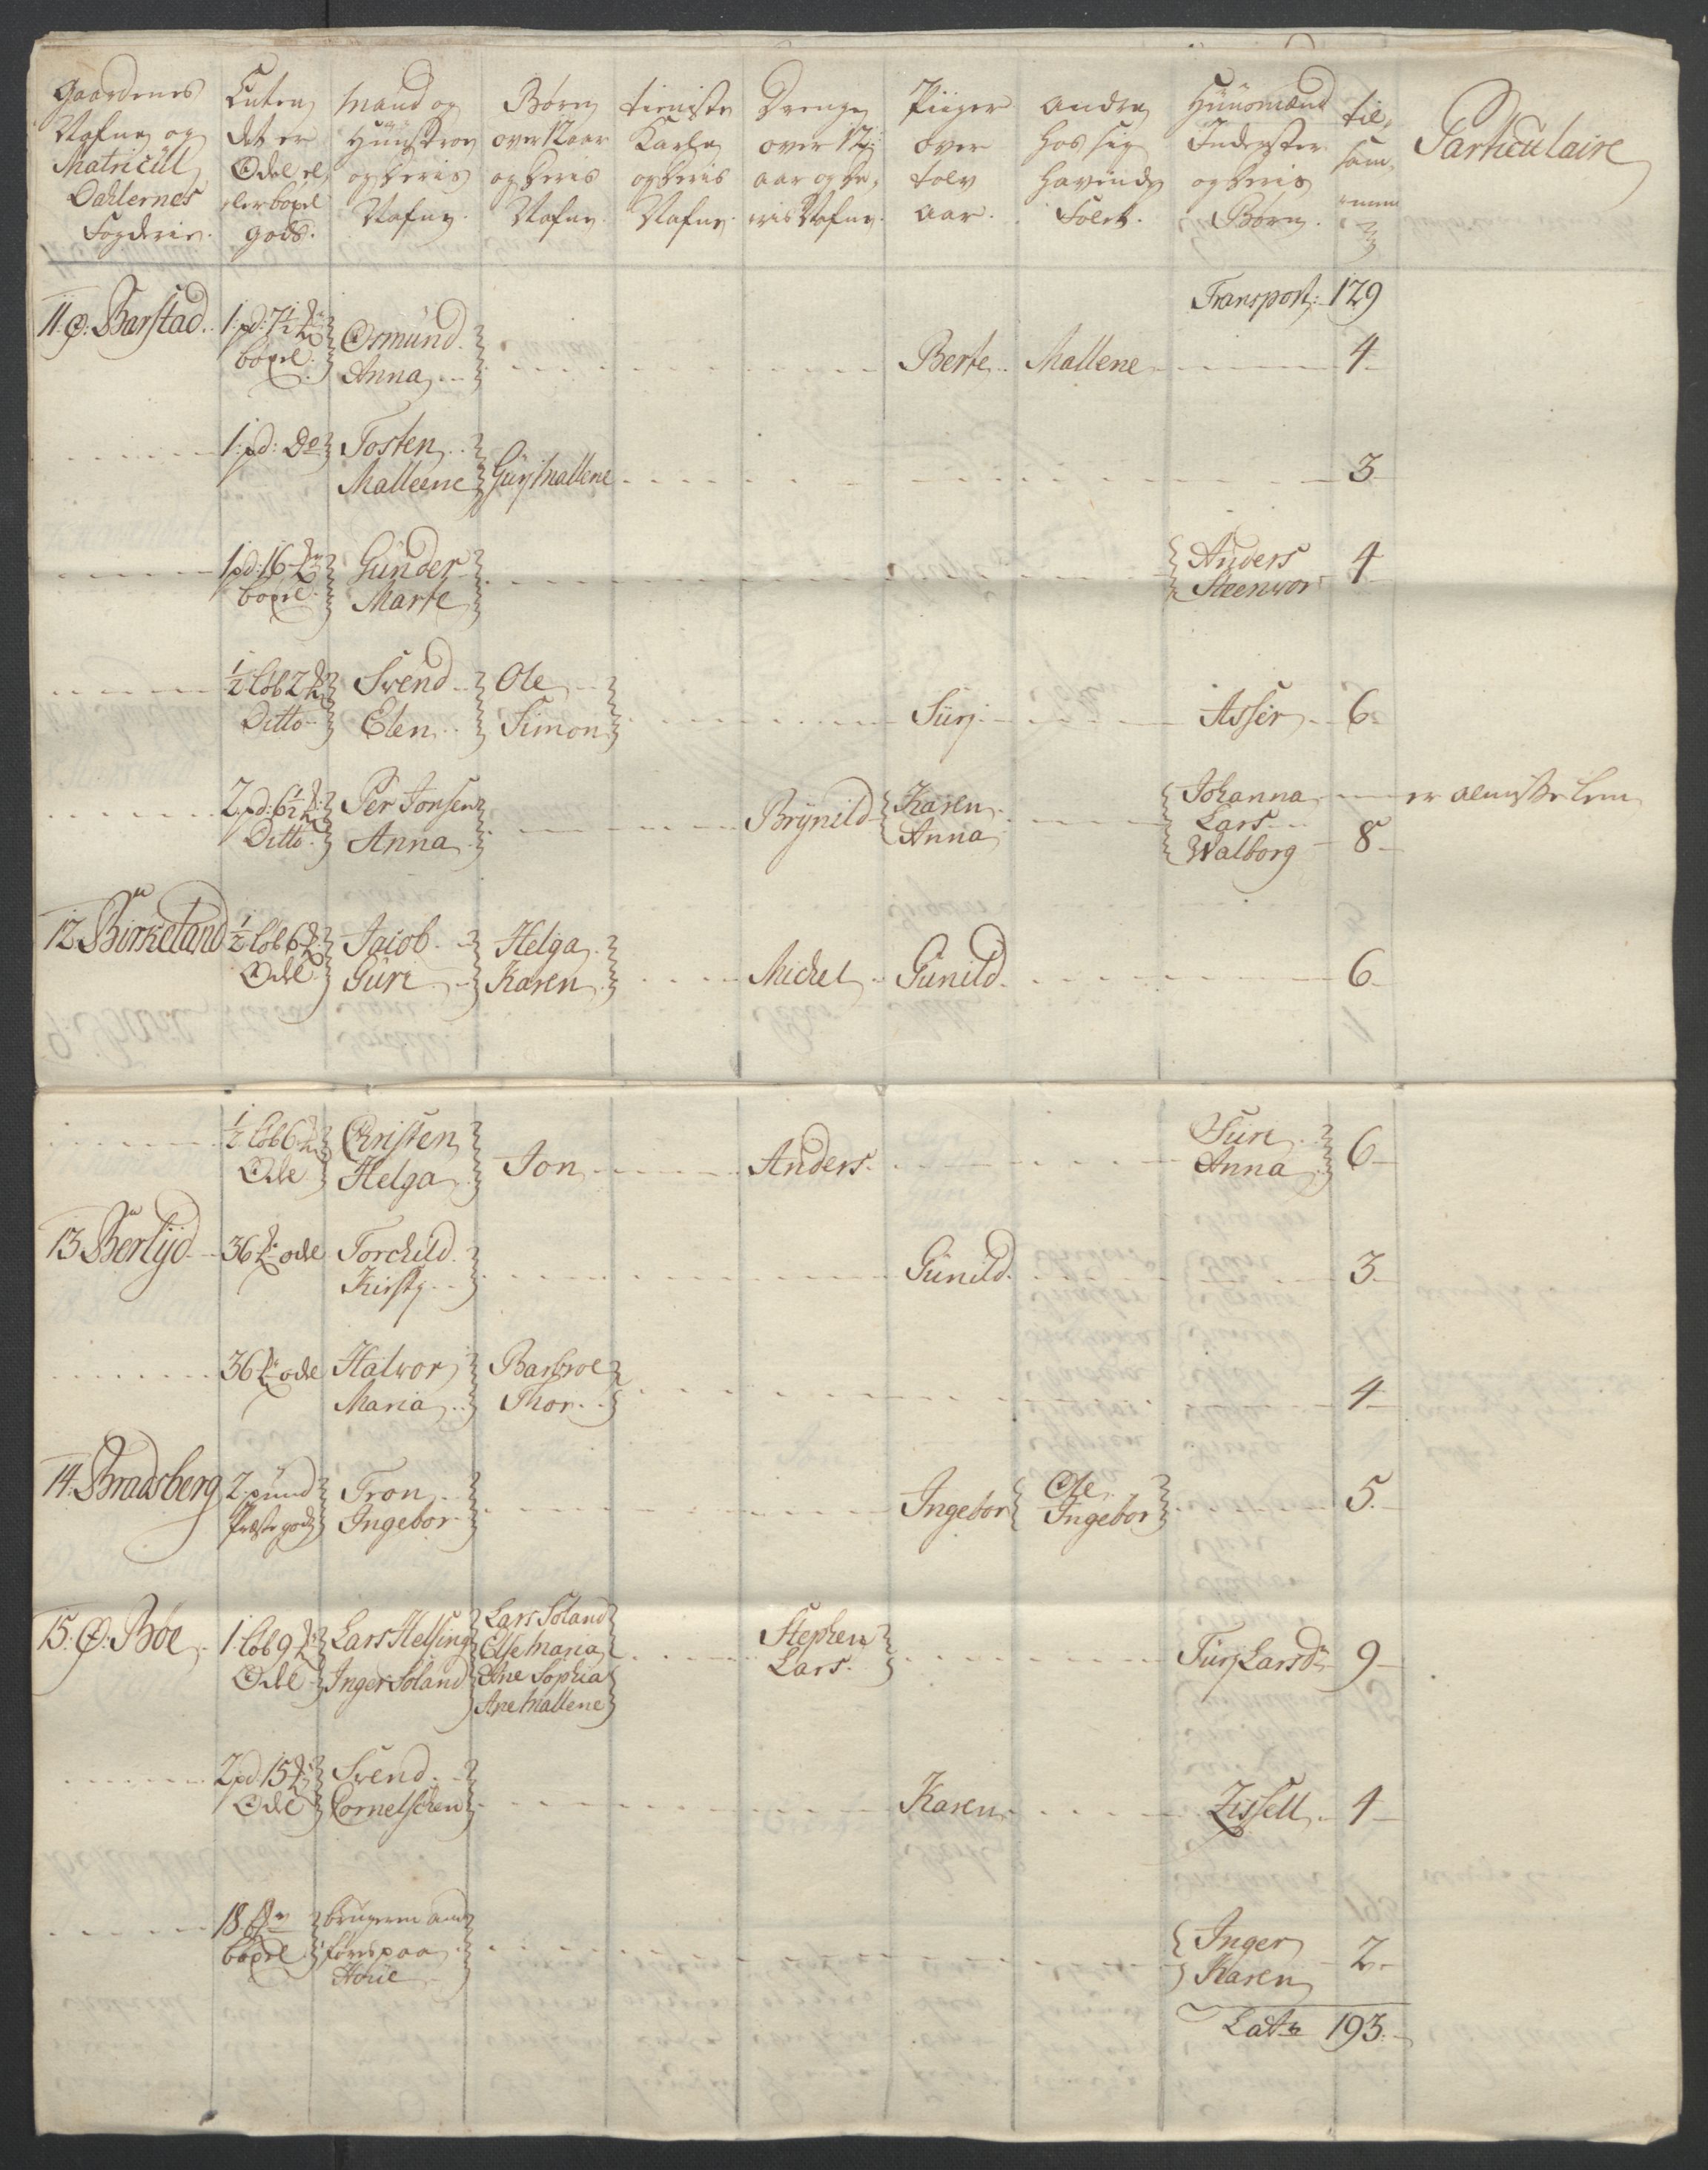 Gaardenes Nafne og Matricül Dahlernes Fogderie.
Enten det er Odel el, eler böxel gods.
Mand og Hüüstroe og deris Nafne.
Børn over 12 aar og deris Nafne.
tieniste Karle og deris Nafne.
Drenge over 12: aar og de, ris Nafne.
Piiger over tolv aar.
Andre hos sig havende Folck.
Hüüsmænd Inderster og deris Børn.
til, sam,
Particulaire
Transport: 129
11. Ø. Barstad. 1: pd: 7½ böxel. Osmund. Anna Berte Mallene 4
1: pd: Do Tosten Malleene Gurj Mallene 3
1 pd: 16 böxel. Gunder Marte Anders Steenwor 4
½ löb 2 Ditto Svend Elen Ole Simon Siirj Asser 6
2 pd: 6½ Ditto Per Jonsen Anna Brynild Karen Anna Johanna Lars Walborg 8 er almisse lem
12 Birkeland ½ löb 6 Odel Jacob Guri Helga Karen Michel Gunild 6
½ löb 6 Odel Christen Helga Jon Anders Siiri Anna 6
13 Berlijd 36 odel Torchild Kirsty Gunild 3
36 odel Halvor Maria Barbroe Thor 4
14. Bradsberg 2 pund Præste gods Tron Ingebor Ingebor Ole Ingebor 5
15: Ø: Bøe 1: löb 9 Odel Lars Helsing Inger Soland Lars Soland Else Maria Ane Sophia Ane Mallene Stephen Lars Siirj Larsd 9
2 pd 15 Odel Svend Cornelschen Karen Zissell 4
18 böxel brugeren anföres paa Inger Karen 2
Lats 193